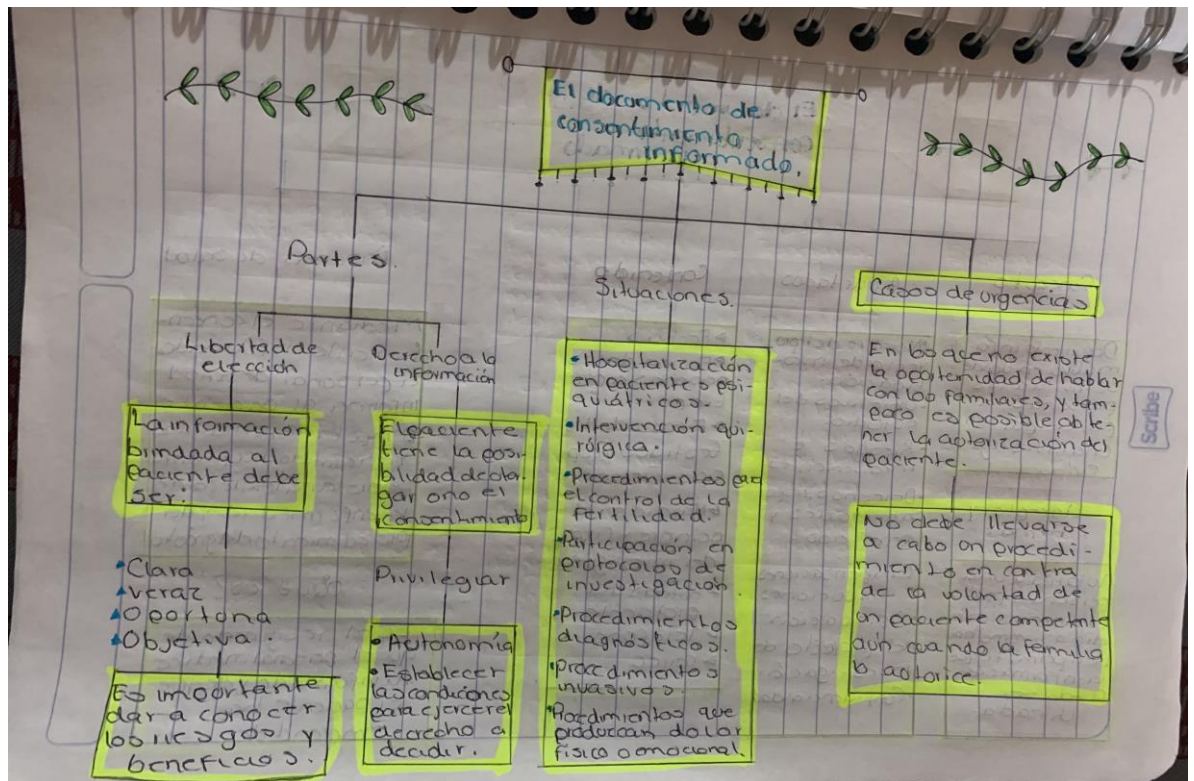 El documento de
consentimiento
informado.
Partes.
Libertad de
elección
La información
brindada al
paciente debe
ser:
Clara
veraz
Oportuna
Objetiva.
Es importante
dar a conocer
los riesgos y
beneficios.
Derecho a la
información
El paciente
tiene la posi-
bilidad de otor-
gar o no el
consentimiento
Privilegiar
Autonomía
Establecer
las condiciones
para ejercer el
derecho a
decidir.
Situaciones.
Hospitalización
en pacientes psi-
quiátricos.
Intervención qui-
rúrgica.
Procedimientos para
el control de la
fertilidad.
Participación en
protocolos de
investigación
Procedimientos
diagnósticos.
Procedimientos
invasivos.
Procedimientos que
produzcan dolor
físico o emocional.
Casos de urgencias
En los que no existe
la oportunidad de hablar
con los familiares, y tam-
poco es posible obte-
ner la autorización del
paciente.
No debe llevarse
a cabo un procedi-
miento en contra
de la voluntad de
un paciente competente
aún cuando la familia
lo autorice.
Scribe